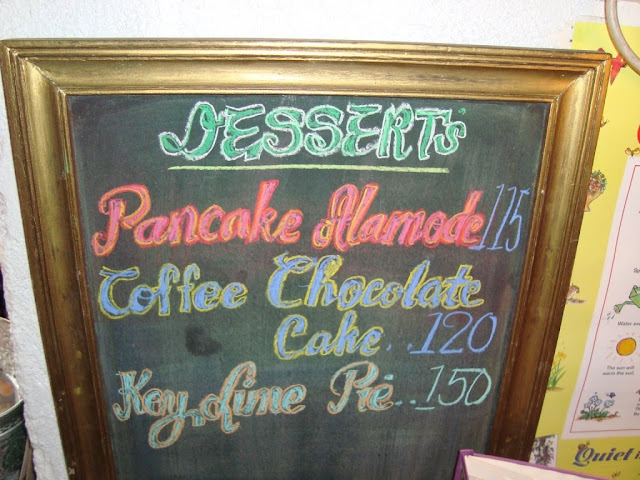 DESSERTS
Pancake Alamode 115
Coffee Chocolate
Cake.. 120
Key Lime Pie.. 150
The sun will
warm the soil.
Quiet